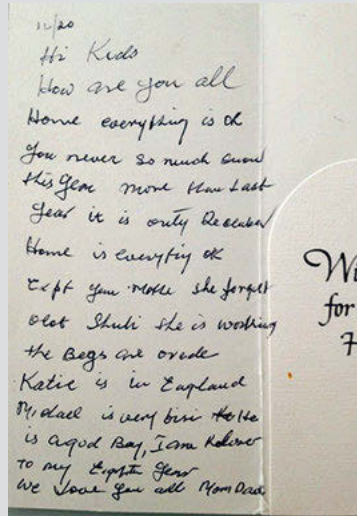 12/20
Hi Kids
How are you all
Home everything is ok
you never so much snow
this year more than Last
year it is only December
Home is everytig ok
Expt your Mothe she forget
alot she is working
the Begs are orade
Katie is in England
Michael is very bisi He
is a god Boy, I am
to my Eighte year
We Love you all Mom Dad
Wi
for
H